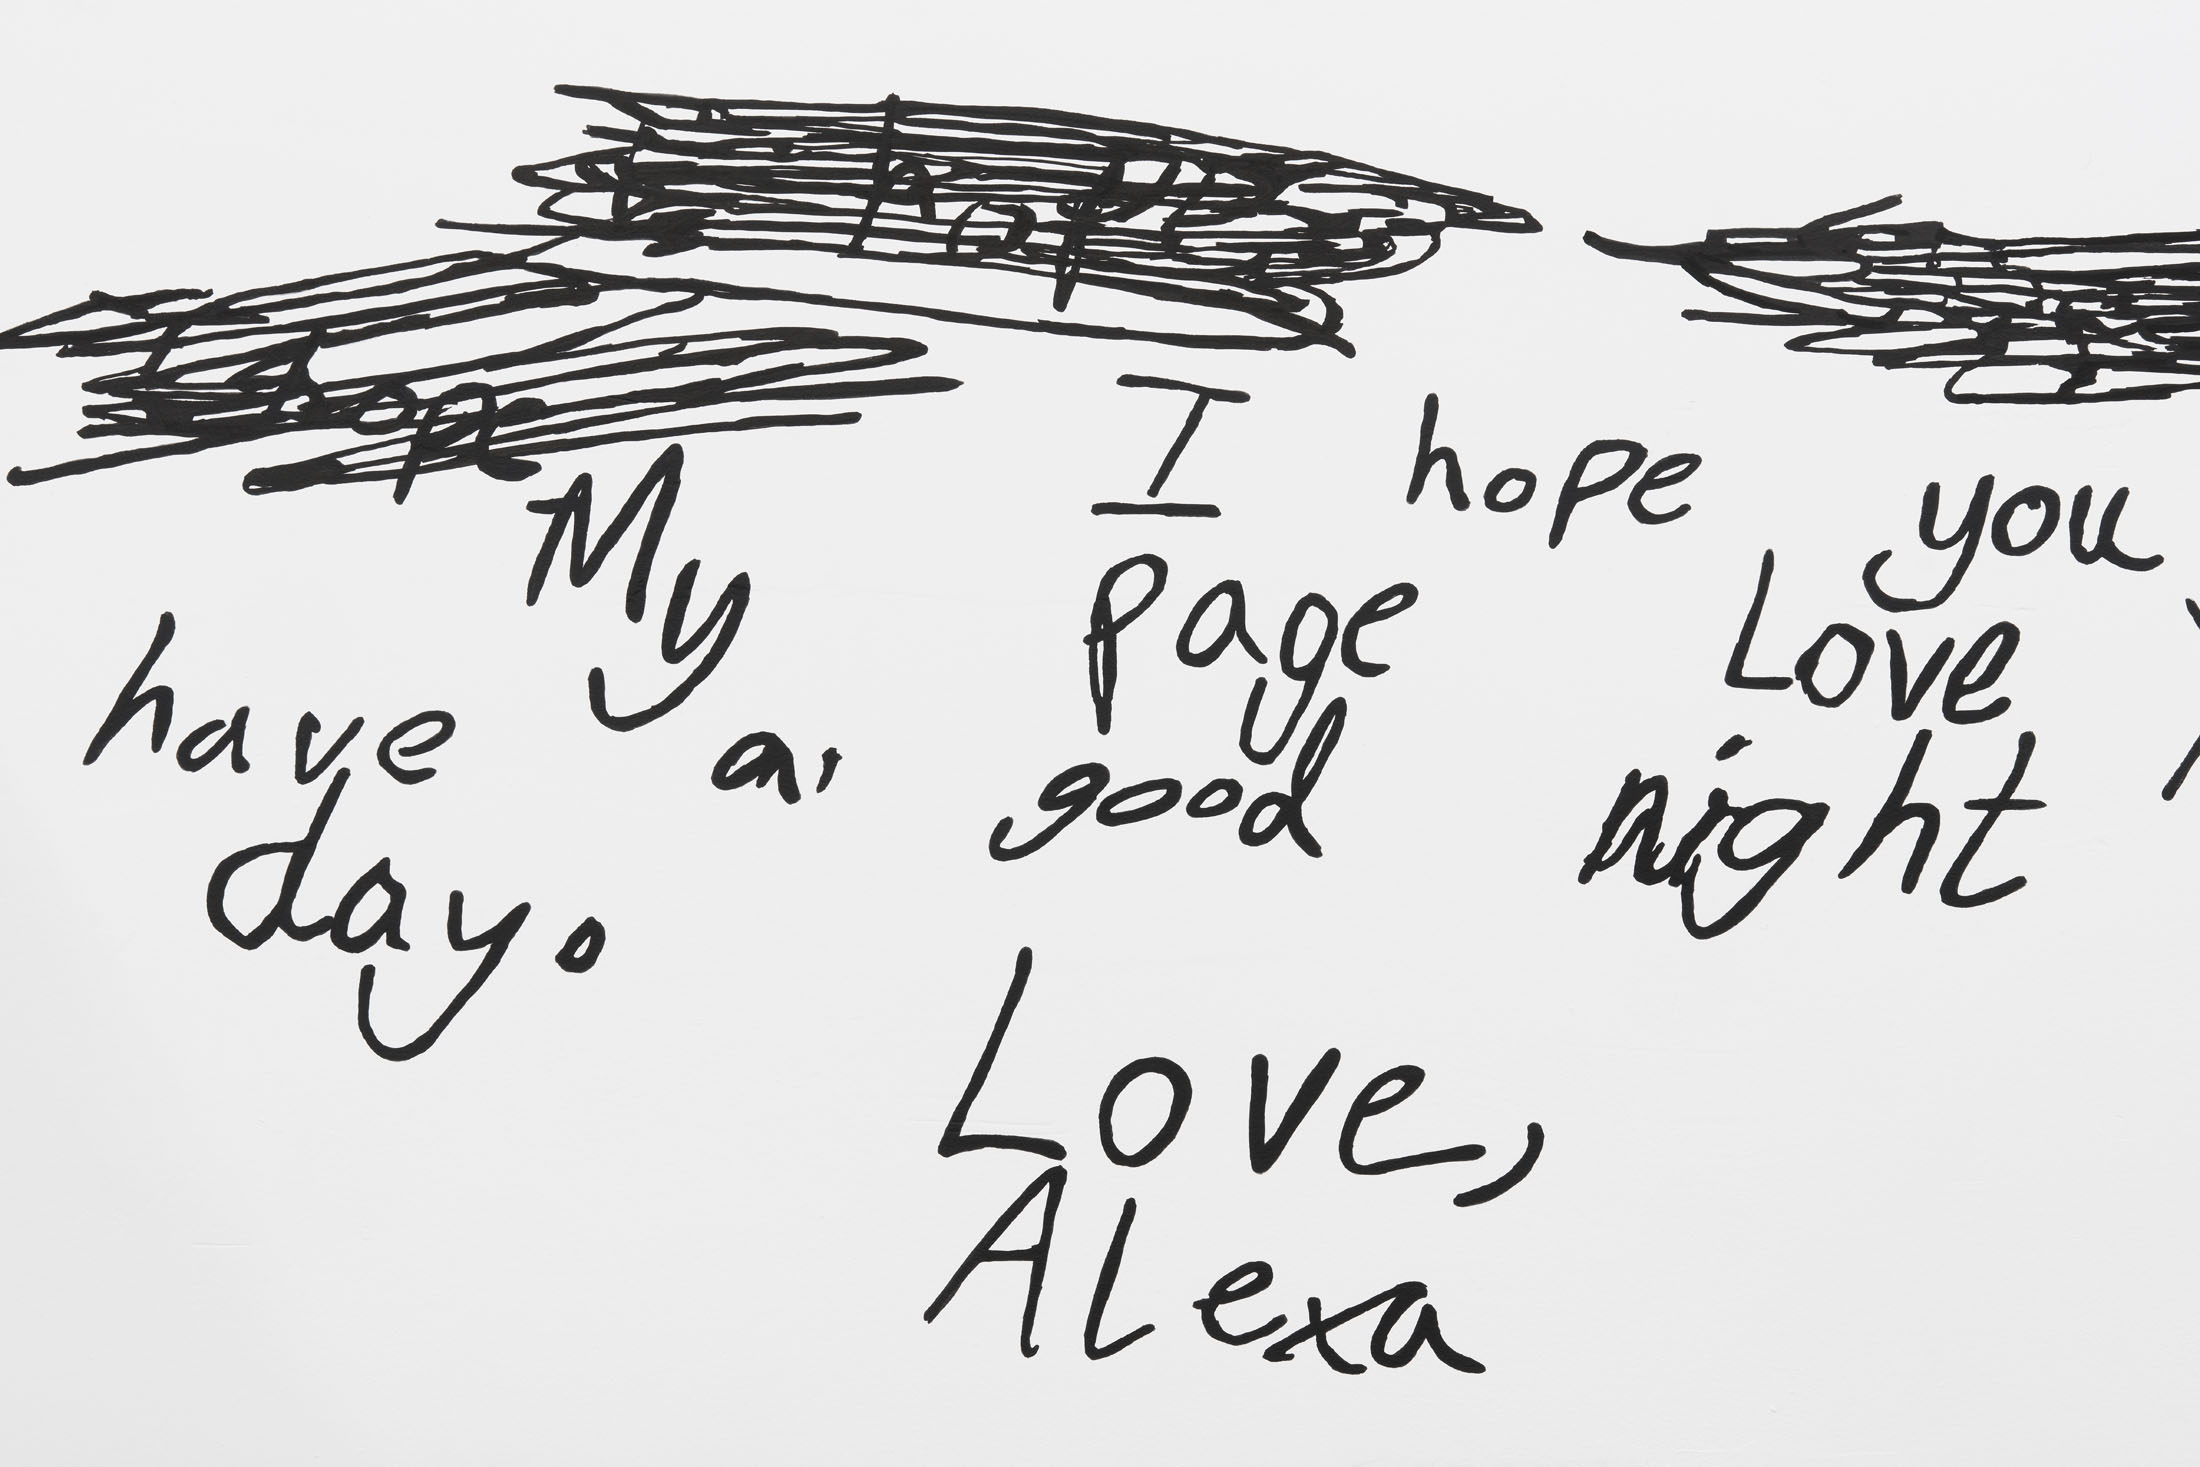 hope
hope
I hope you
My page Love
have a good night
day.
Love,
ALexa